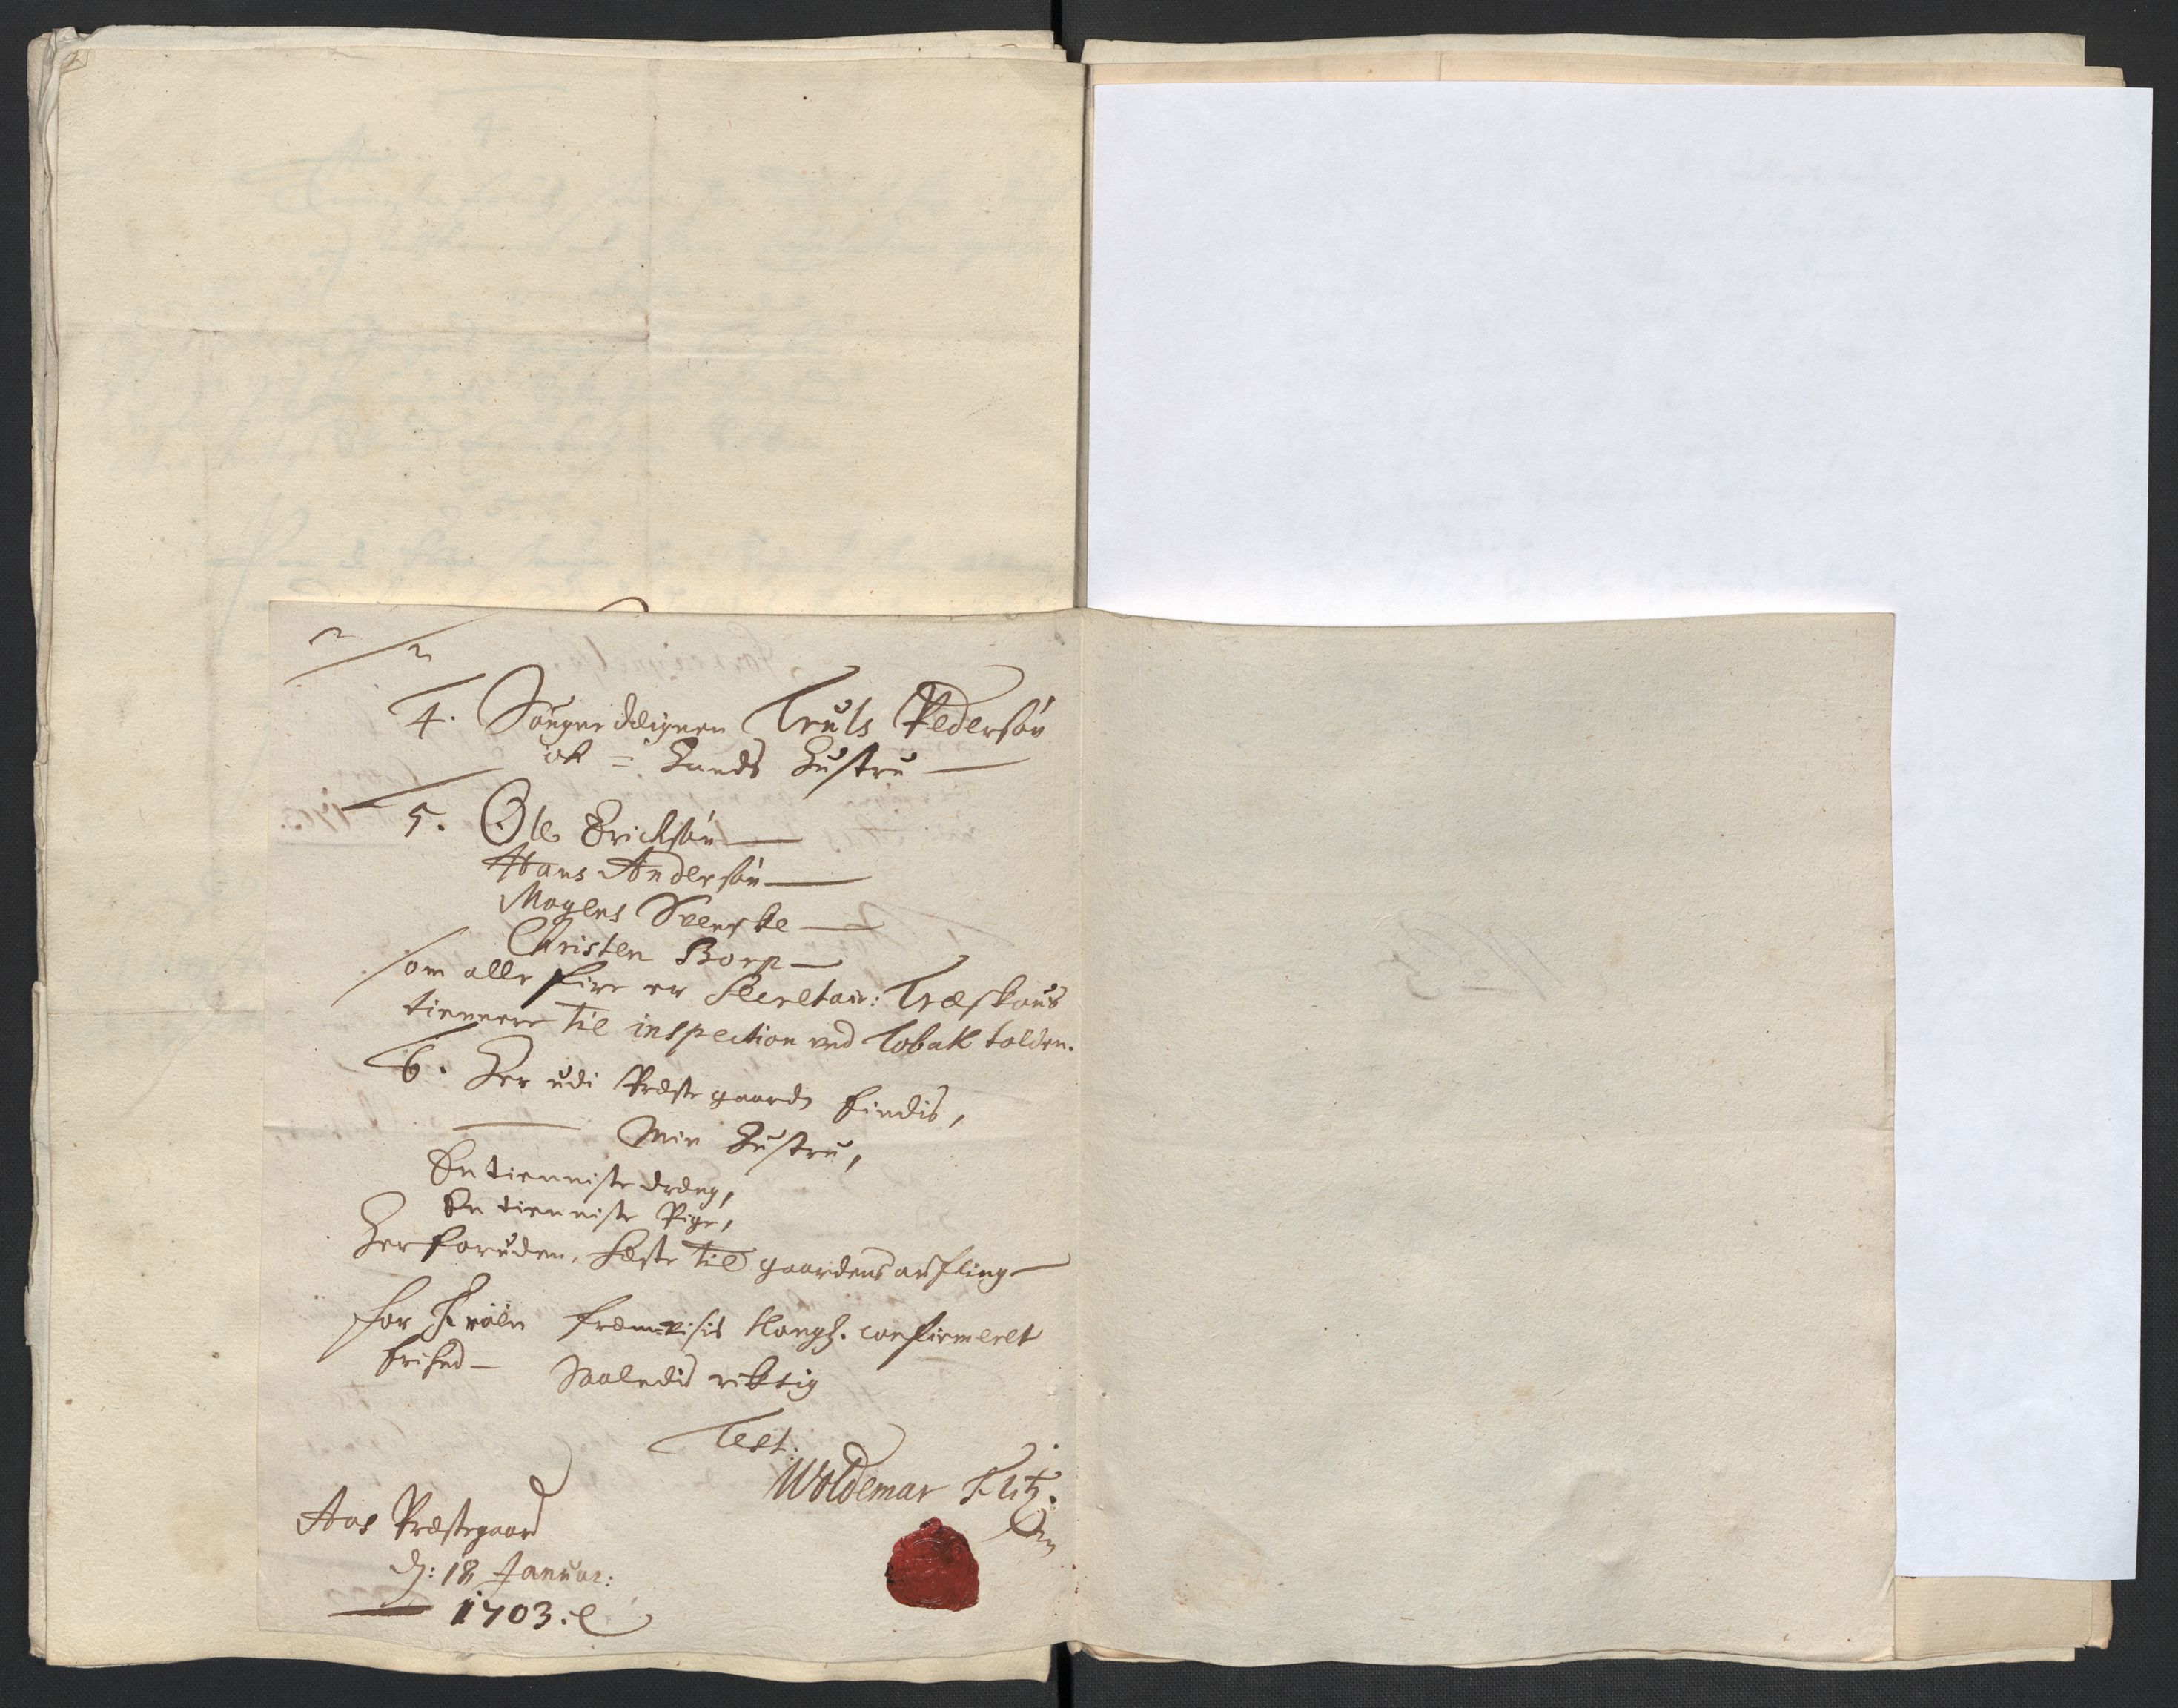 4. Sougne deignen Truls Pedersøn
ok = Hands Hustru —
5. Ole Ericksøn —
Hans Andersøn —
Mogens Svenske —
Christen Borp —
som alle fire er Secretair: Træskous
tiennere til inspection ved Tobak tolden.
6. Her udi Præste gaarden findis,
Min Hustru,
En tienniste dreng,
En tienniste Pige,
Herforuden, Heste til gaardens aufling —
for fremvisis Kongl. confirmeret
frihed — Saaledis riktig
Test.
Woldemar
Aas Præstegaard
d: 18 Januar:
1703.